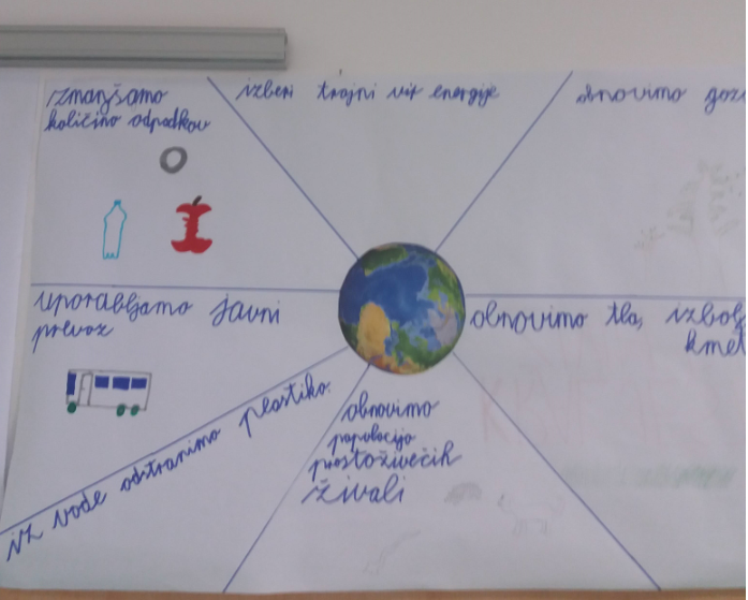 izmanjšamo
količino odpadkov
izberi trajni vir energije
obnovimo gozd
uporabljamo javni
prevoz
obnovimo tla, izbolj
kmet
iz vode odstranimo plastiko
obnovimo
populacijo
prostoživečih
živali